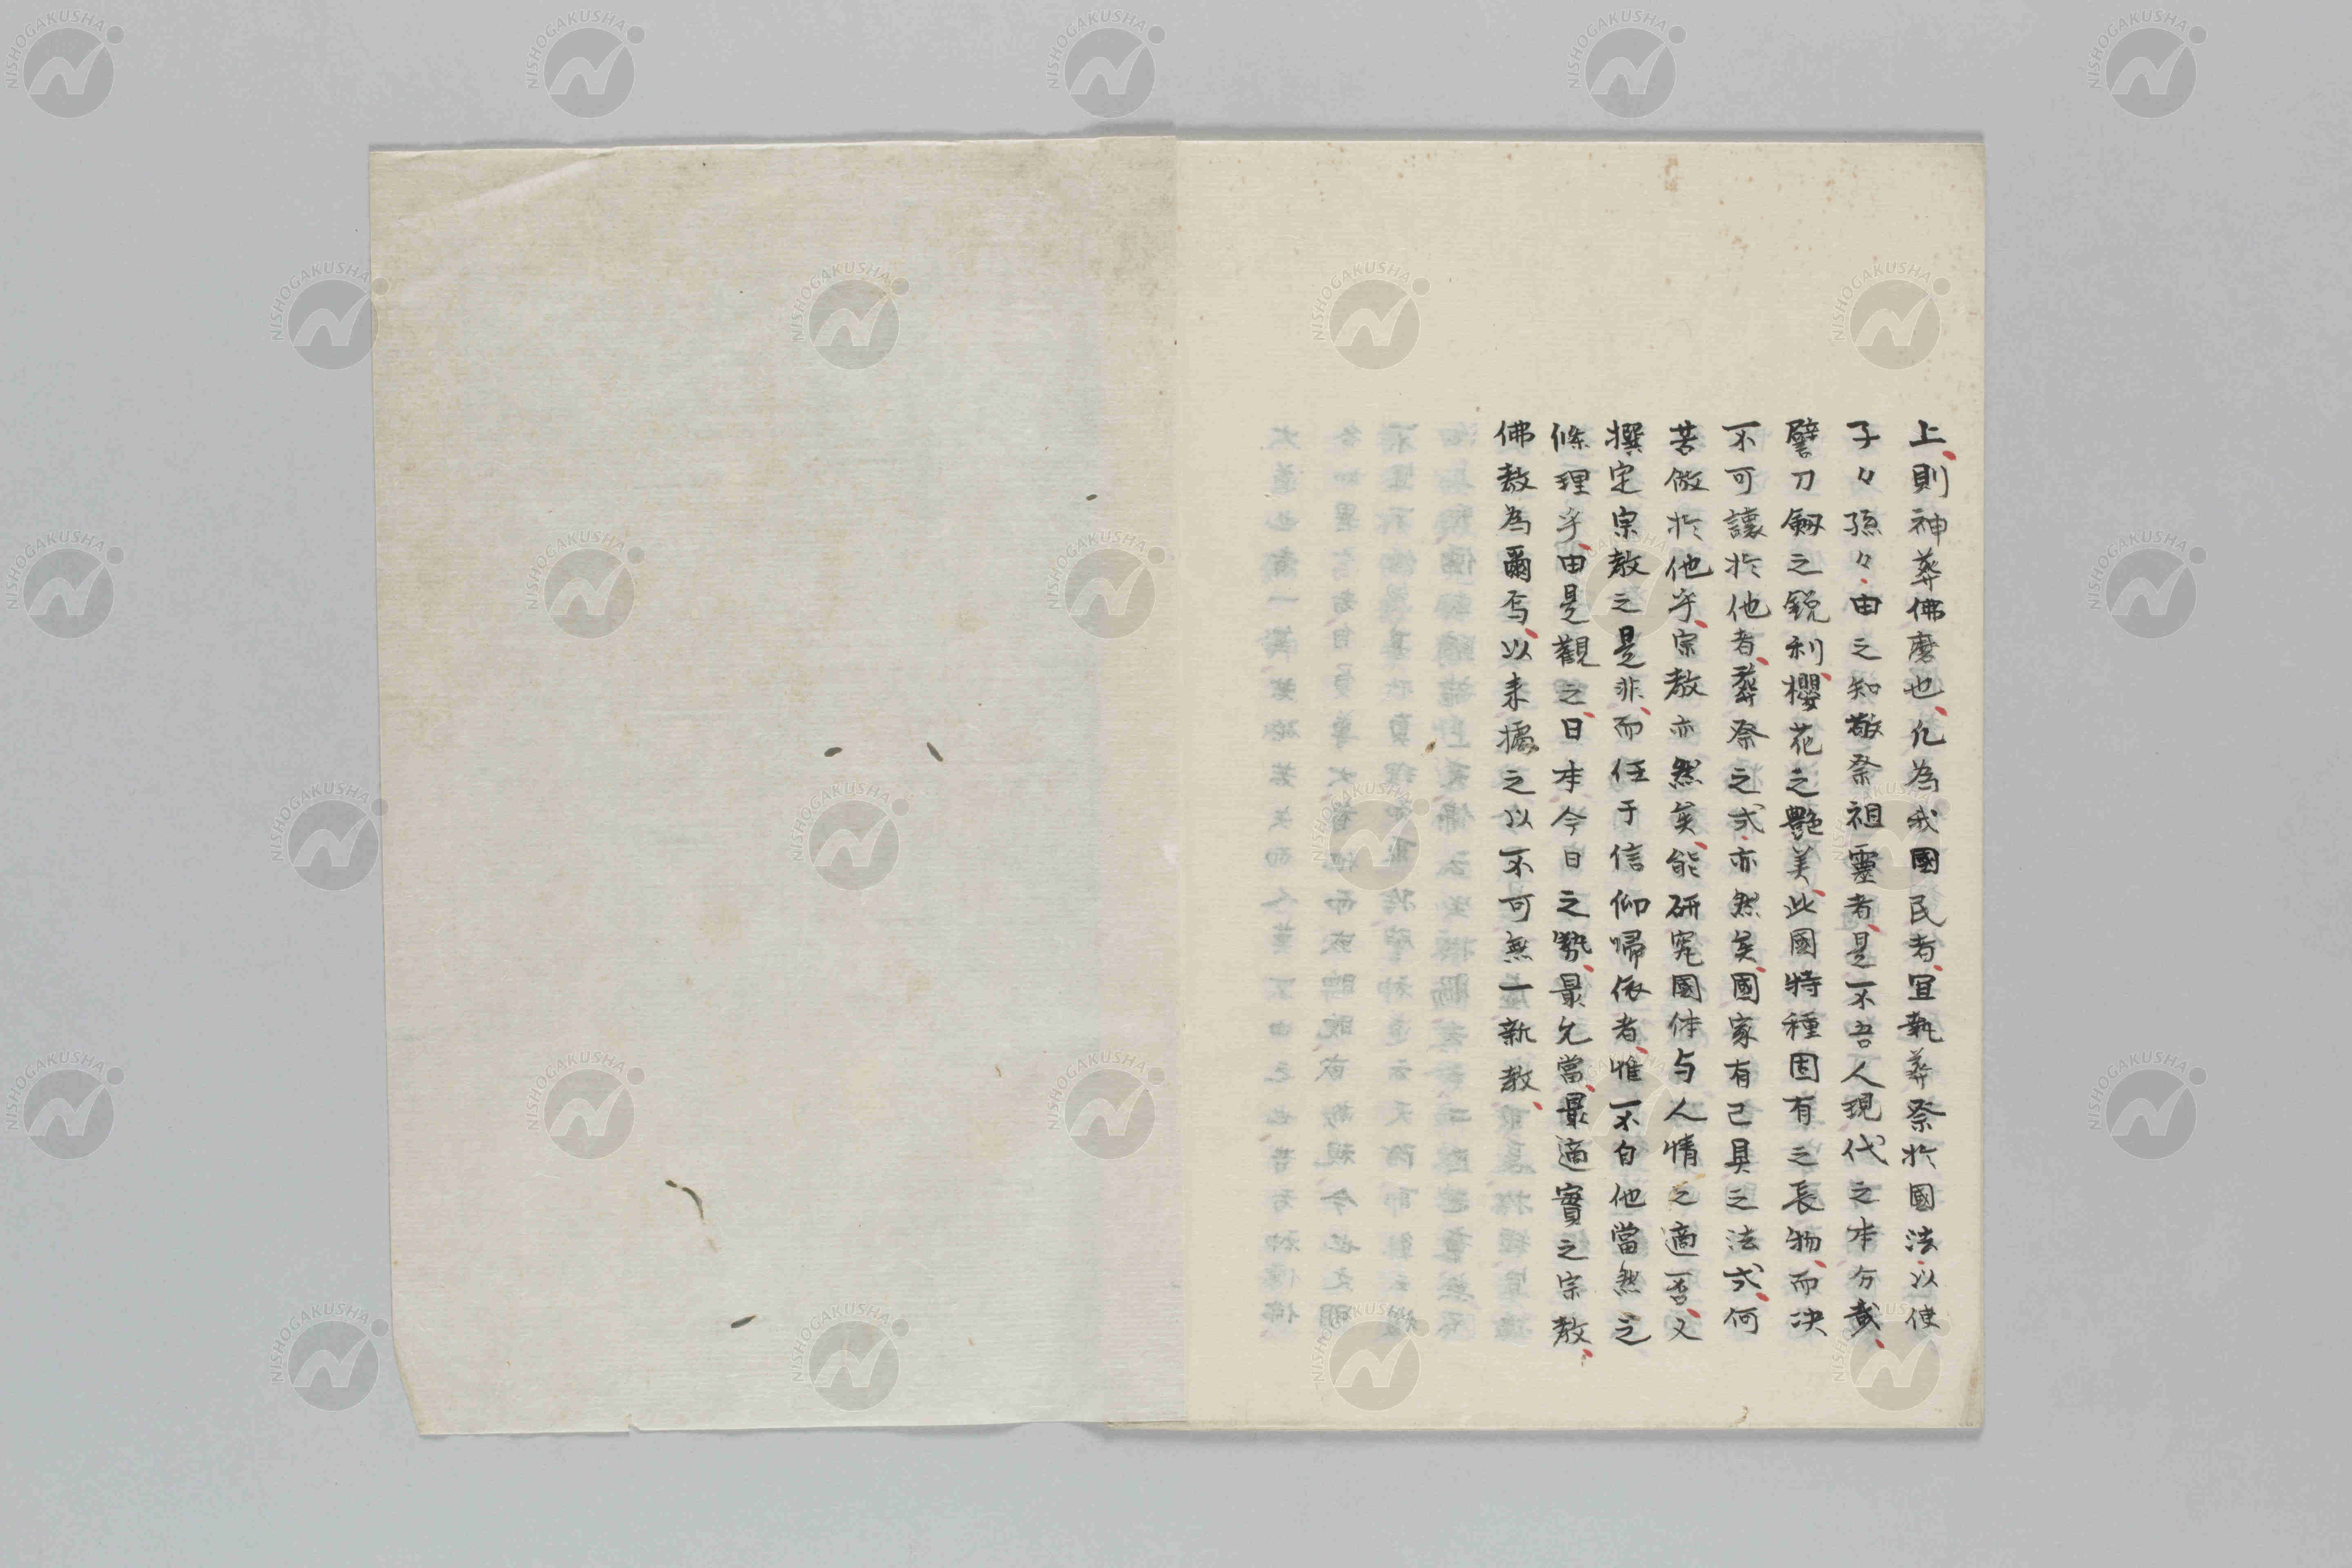 上、則神葬佛磨也、凢為我國民者、宜執葬祭於國法、以使
子々孫々、由之知敬祭祖靈者、是不吾人現代之本分哉、
譬刀劔之鋭利、櫻花之艷美、此國特種固有之長物、而决
不可讓於他者、葬祭之式、亦然矣、國家有己具之法式、何
苦倣於他乎、宗教亦然矣、能研究國体与人情之適否、又
撰定宗教之是非、而任于信仰帰依者、惟不自他當然之
條理乎、由是觀之、日本今日之勢、最允當、最適實之宗教、
佛教為爾焉、以未據之以不可無一新教、